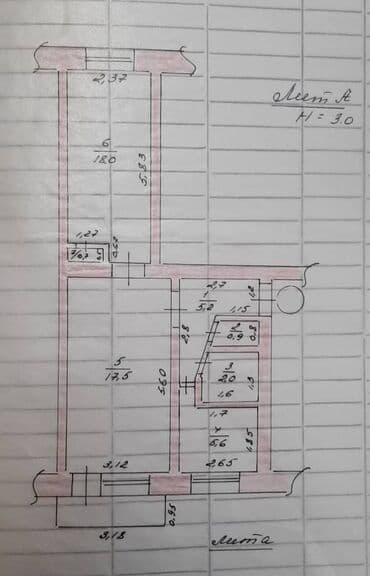 Лит А
H = 3.0
2,37
6
18.0
5.83
1,27
0.62
7/0,7
2,7
1
5,2
1,2
1,15
2
0,9
0.8
2,8
3
2.0
1,3
1,6
5
17,5
5.60
1,7
4
5,6
2,65
3,12
0,95
3,18
Лит а